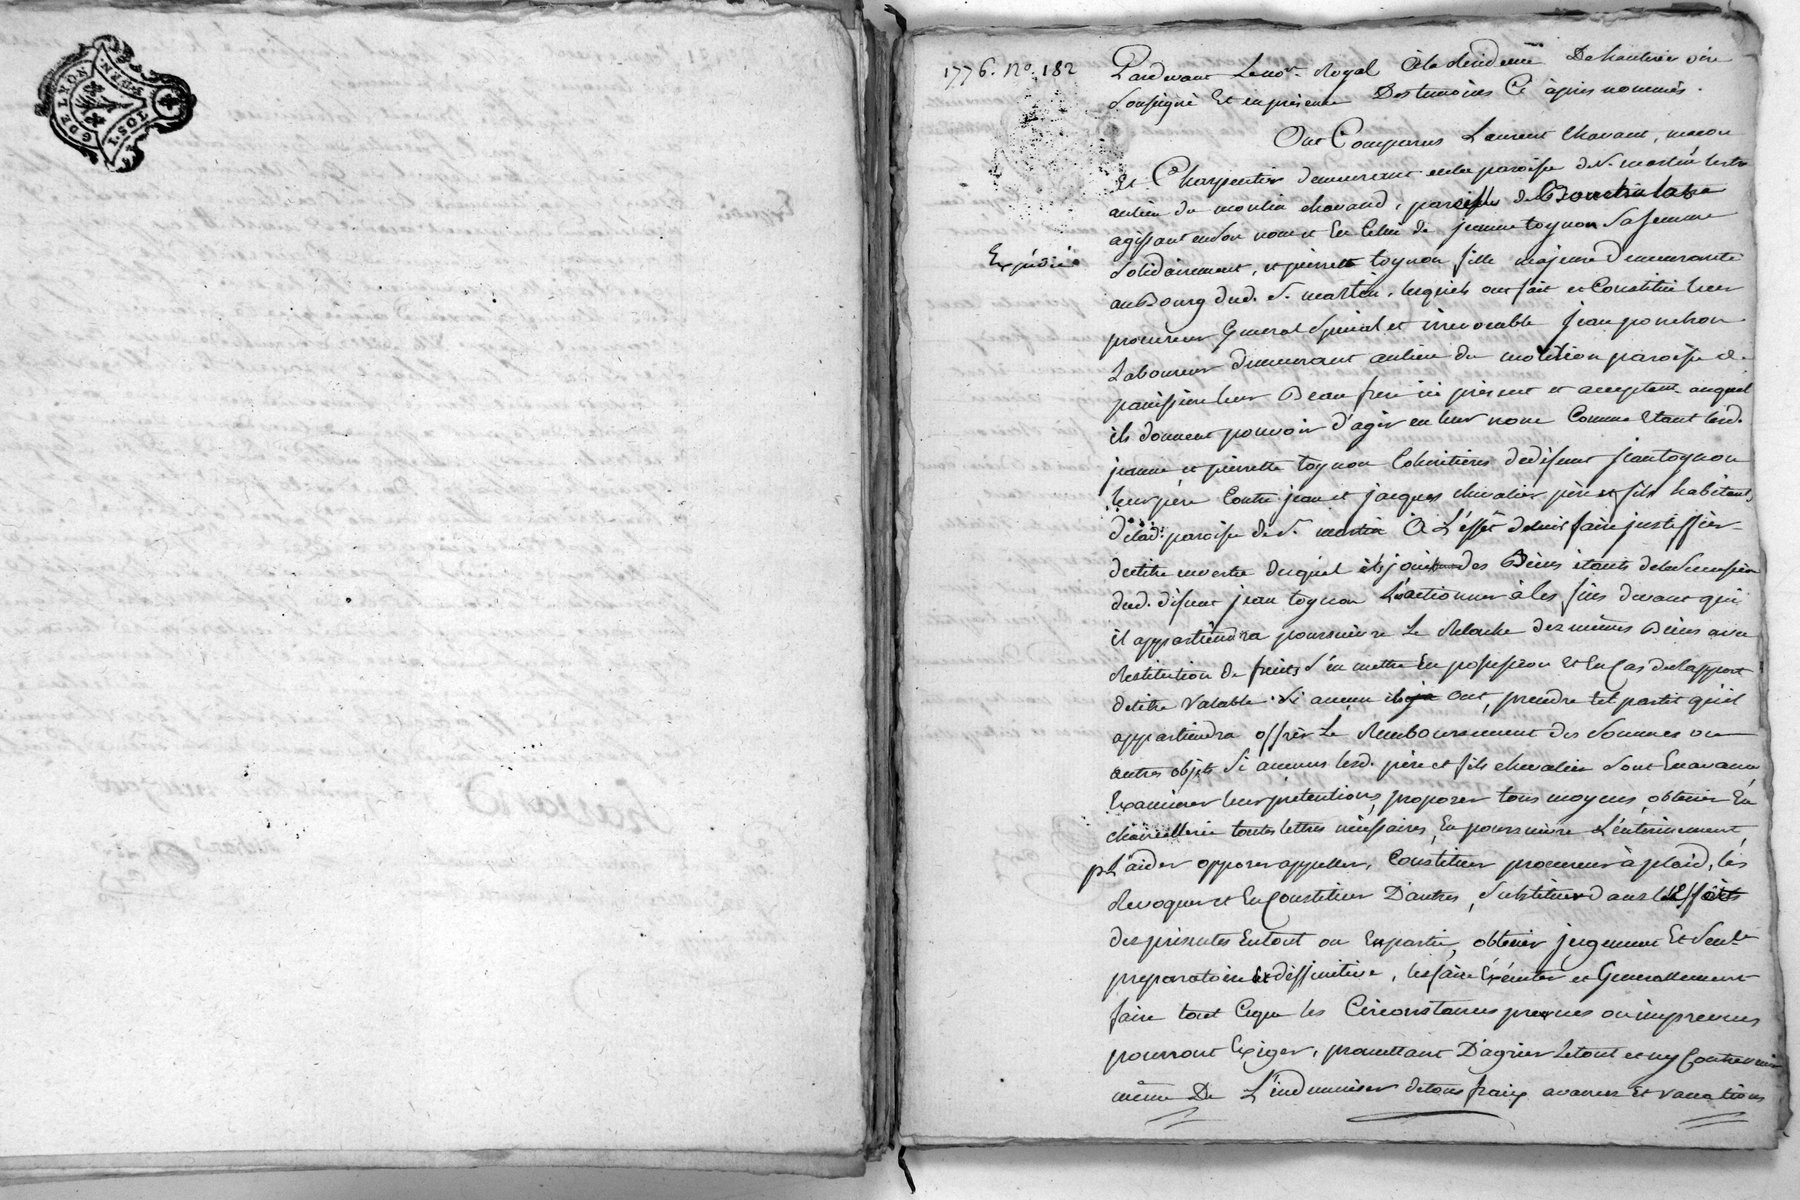 G DE LYON
1776. No. 182
Pardevant Le nore. Royal À la résidence De
soussigné Et en présence Des temoins Cy après nommés.
Ont Comparus Laurent Chavant, maçon
Et Charpentier demeurant en la paroisse de St. martin
au lieu du moulin chavand, paroisse de
agissant en son nom et En Celui de jeanne toynon Sa femme
Expédié
Solidairement, et pierrette toynon fille majeure Demeurante
au Bourg dud. St. martin, lesquels ont fait et Constitué leur
procureur General Spécial et irrevocable Jean ponchon
Laboureur demeurant au lieu du paroisse de
panissiere leur Beau frere ici présent et acceptant auquel
ils donnent pouvoir d'agir en leur nom Comme Etant lesd.
jeanne et pierrette toynon Cohéritières de deffunt jean toynon
leur père Contre jean et jacques chevalier père et fils habitants
de lad. paroisse de St. martin À L'effet de leur faire justiffier
de titre en vertu duquel ils jouissent des Biens étants de la Succession
dud. défunt jean toynon L'actionner à les fins devant qui
il appartiendra poursuivre Le Relache des mêmes Biens avec
Restitution de fruits S'en mettre En possession Et En Cas de Rapport
de titre Valable Si aucun ont, prendre tel partit qu'il
appartiendra offrir Le Remboursement des Sommes ou
autres objets Si aucuns lesd. père et fils chevalier Sont En avance
Examiner leur prétentions, proposer tous moyens, obtenir En
chancellerie toutes lettres nécessaires, En poursuivre L'enterinement
pLaider opposer appeller, Constituer procureur à plaid, les
Revoquer et En Constituer D'autres, Substituer dans
des présentes En tout ou En partie, obtenir jugement Et Sentce
preparatoire Et diffinitive, les faire Exécuter et Generallement
faire tout Ceque les Circonstances prevues ou imprevues
pourront Exiger, promettant D'agréer Le tout et n'y Contrevenir
même De L'indemniser de tous fraix avances Et vacations